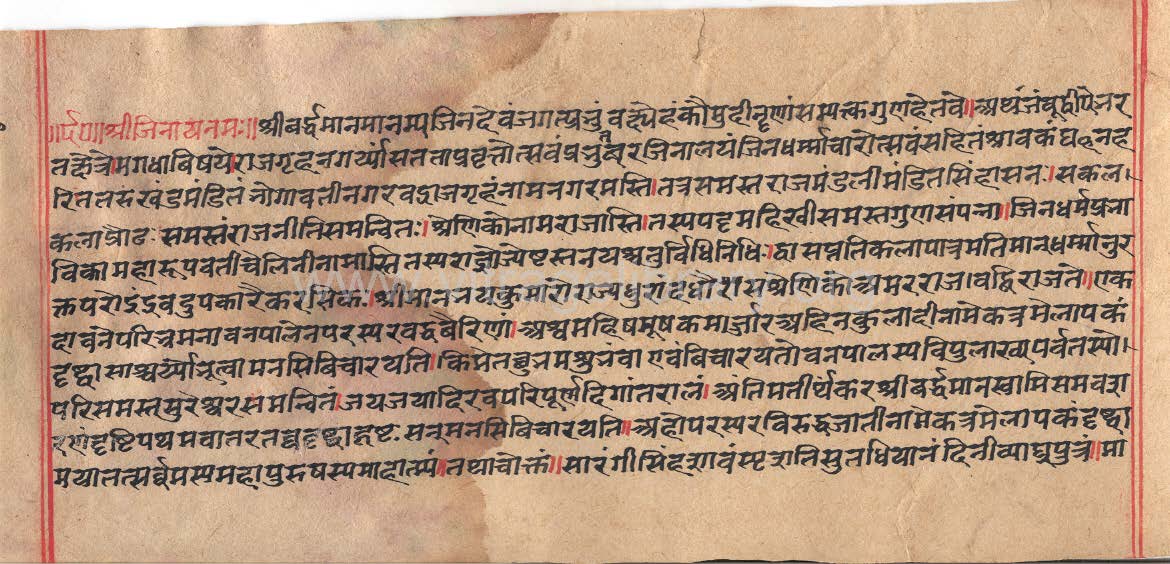 ॥र्द०॥ श्रीजिनाय नमः॥ श्रीवर्द्धमानमानम्य जिनदेवं जगत्प्रभुं वक्ष्येहं कौमुदीं नॄणां सम्यक्त्वगुणहेतवे॥ अथ जंबूद्वीपे भर
तक्षेत्रे मगधाविषये। राजगृहनगर्य्यां सततप्रवृत्तोत्सवं प्रभुवरजिनालयं जिनधर्म्माचारोत्सवं सहितं श्रावकं घनह
रिततरुखंडमंडितं भोगावतीनगरवद्राजगृहं नाम नगरमस्ति। तत्र समस्तराजमंडलीमंडितसिंहासनः। सकल।
कलाप्रौढः समस्तं राजनीतिसमन्वितः। श्रेणिको नाम राजास्ति। तस्य पट्टमहिषी समस्तगुणसंपन्ना॥ जिनधर्मप्रभा
विका महारूपवती चेलिनी नामास्ति तस्य राज्ञो ज्येष्टस्तनयश्चतुर्विधनिधिः। द्वासप्ततिकलापात्रमतिमान् धर्म्मानुर
क्त परोइंडुवदुपकारैकरसिकः। श्रीमानभयकुमारो राज्यधुरादधौरा सश्रेणिको अमरराजावद्विराजते॥ एक
दा वने परिभ्रमता वनपालेन परस्परवद्धवैरिणां। अश्वमहिषमूषकमार्जारअहिनकुलादीनामेकत्रमेलापकं
दृष्ट्वा साश्चर्य्यो भूत्वा मनसि विचारयति। किमेतछुभमशुभं वा एवं विचारयतो वनपालस्य विपुलाख्यपर्वतस्यो।
परि समस्तसुरेश्वरसमन्वितं। जयजयादिरवपरिपूर्णदिगांतरालं। अंतिमतीर्थकरश्रीवर्द्धमानस्वामिसमवश
रणं दृष्टिपथमवातरतच्च दृष्ट्वा हृष्टः सन् मनसि विचारयति॥ अहो परस्परविरुद्धजातीनामेकत्रमेलापकं दृष्ट्वा
मया तत्सर्व्वमस्य महापुरुषस्य माहात्म्यं। तथा चोक्तं॥ सारंगी सिंहशावं स्पृशति सुतधिया नंदिनी व्याघ्रपुत्रं॥ मा